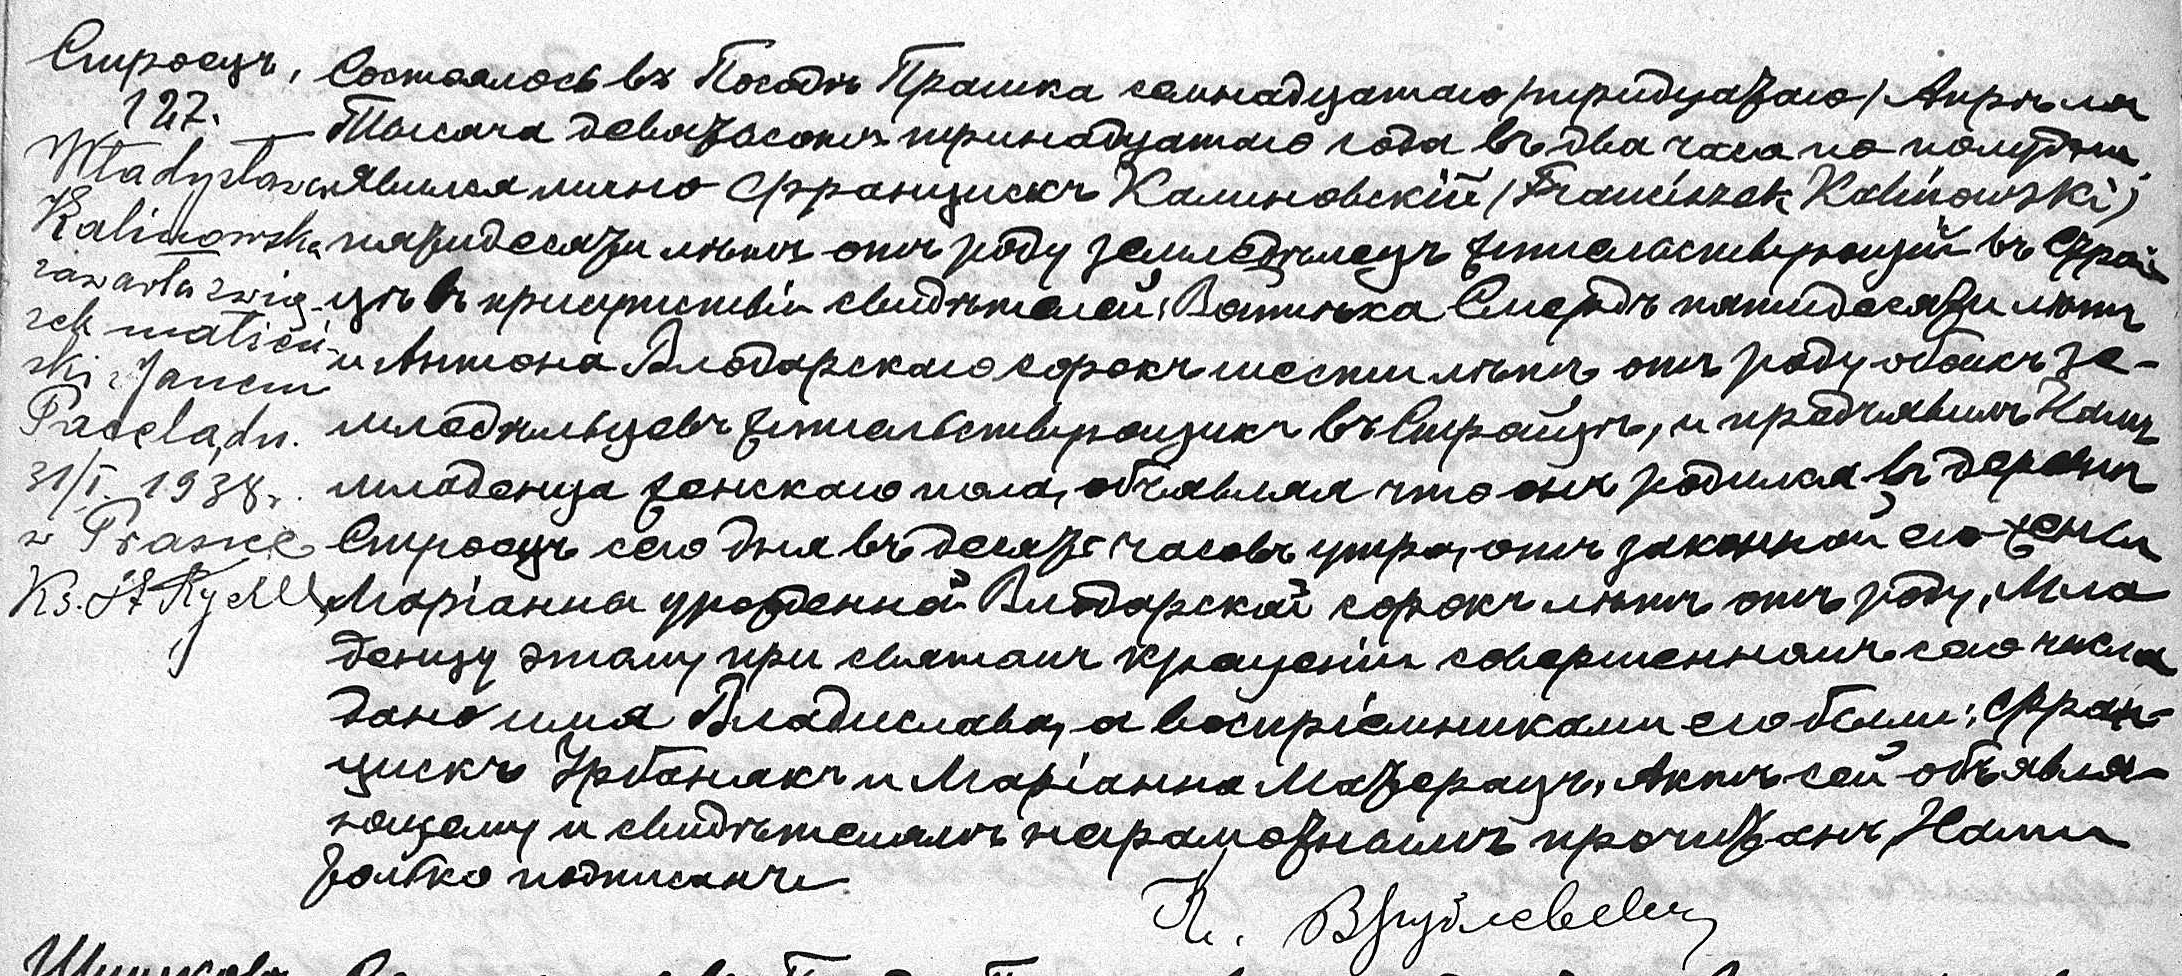 Строецъ,
127.
Władysława
Kalinowska
zawarła zwią-
zek małżeń-
ski z Janem
Pacelą, dn.
31/I. 1938 r.
w Praszce
Ks. St
Состоялось въ Посадѣ Прашка семнадцатаго /тридцатаго/ Апрѣля
Тысяча девятьсотъ тринадцатаго года въ два часа по полудни
явился лично Францискъ Калиновскій /Franciszek Kalinowski/
пятидесяти лѣтъ отъ роду земледѣлецъ жительствующій въ Строй
цѣ въ присутствіи свидѣтелей: Войцѣха пятидесяти лѣтъ
и Антона Влодарскаго сорокъ шести лѣтъ отъ роду обоихъ зе-
мледѣльцевъ жительствующихъ въ Стройцѣ, и предъявилъ Намъ
младенца женскаго пола, объявляя что онъ родился въ деревнѣ
Строецъ сего дня въ десять часовъ утра, отъ законной его жены
Маріанны урожденной Влодарской сорокъ лѣтъ отъ роду, Мла
денцу этому при святомъ крещеніи совершенномъ сего числа
дано имя Владислава, а воспріемниками его были: Фран-
цискъ Урбанякъ и Маріанна Мазерацъ, Актъ сей объявля-
ющему и свидѣтелямъ неграмотнымъ прочитанъ, Нами
только подписанъ.
К.